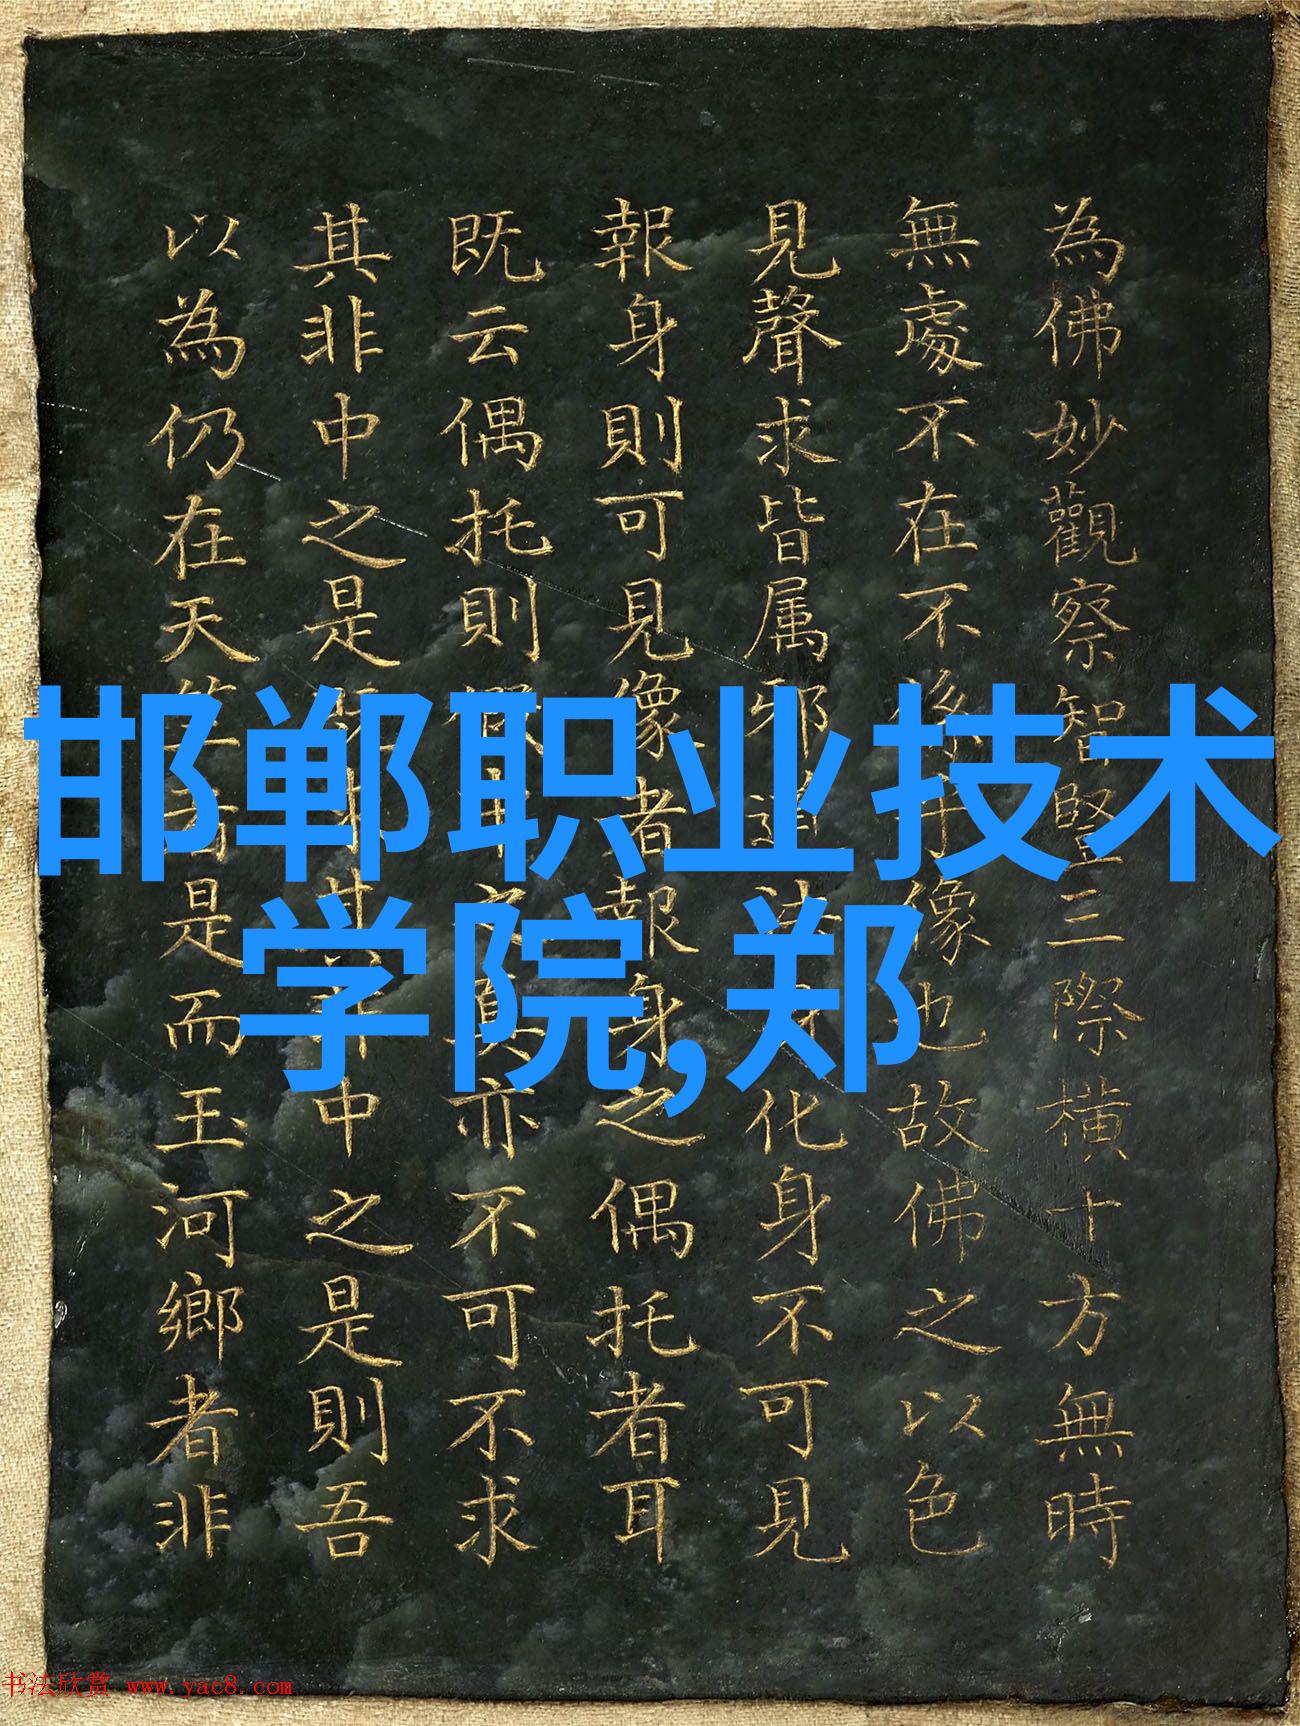 為佛妙觀察智豎三際橫十方無時
無處不在不像也故佛之以色
見聲求皆属邪道法身化身不可見
報身則可見像者報身之偶托者耳
既云偶托則中之真亦不可不求
其非中之是其非中之是則吾
以為仍在天竺者是而玉河鄉者非
邯郸职业技术
学院,郑
书法欣赏 www.yac8.com